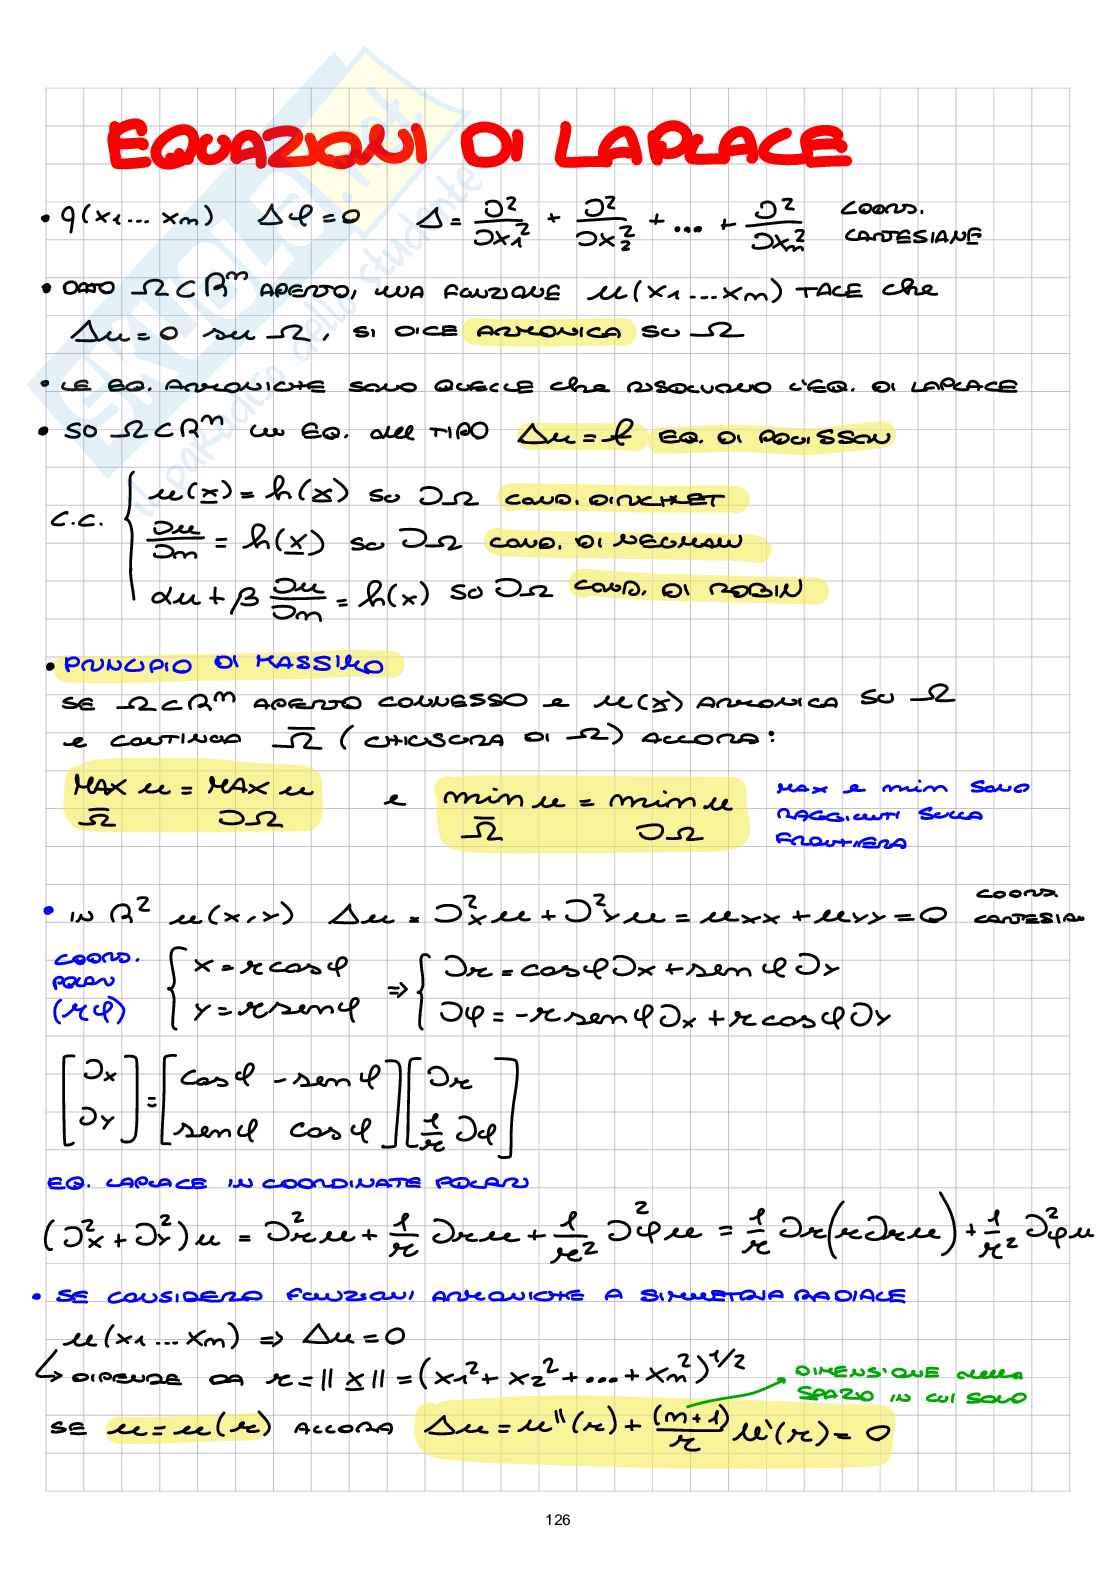 EQUAZIONI DI LAPLACE
• φ(x1... xn) Δφ=0 Δ= ∂²/∂x1² + ∂²/∂x2² + ... + ∂²/∂xn² COORD. CARTESIANE
• DATO Ω⊂ℝⁿ APERTO, UNA FUNZIONE u(x1...xn) TALE che
Δu=0 su Ω, SI DICE ARMONICA SU Ω
• LE EQ. ARMONICHE SONO QUELLE che RISOLVONO L'EQ. DI LAPLACE
• SU Ω⊂ℝⁿ un EQ. dell TIPO Δu=f EQ. DI POISSON
C.C. { u(x)=h(x) SU ∂Ω COND. DIRICHLET
∂u/∂n = h(x) SU ∂Ω COND. DI NEUMANN
αu+β ∂u/∂n = h(x) SU ∂Ω COND. DI ROBIN
• PRINCIPIO DI MASSIMO
SE Ω⊂ℝⁿ APERTO CONNESSO e u(x) ARMONICA SU Ω
e CONTINUA Ω̅ (CHIUSURA DI Ω) ALLORA:
MAX u = MAX u e min u = min u MAX e min SONO
Ω̅ ∂Ω Ω̅ ∂Ω RAGGIUNTI SULLA
FRONTIERA
• IN ℝ² u(x,y) Δu = ∂²x u + ∂²y u = uxx + uyy = 0 COORD. CARTESIANE
COORD. POLARI (r φ) { x=r cosφ ⇒ { ∂r = cosφ ∂x + senφ ∂y
y=r senφ ∂φ = -r senφ ∂x + r cosφ ∂y
[∂x ∂y] = [cosφ -senφ senφ cosφ] [∂r 1/r ∂φ]
EQ. LAPLACE IN COORDINATE POLARI
(∂²x + ∂²y)u = ∂²r u + 1/r ∂r u + 1/r² ∂²φ u = 1/r ∂r(r ∂r u) + 1/r² ∂²φ u
• SE CONSIDERO FUNZIONI ARMONICHE A SIMMETRIA RADIALE
u(x1...xn) ⇒ Δu=0
↳ DIPENDE DA r=||x||=(x1²+x2²+...+xn²)^1/2 DIMENSIONE nella
SPAZIO IN CUI SONO
SE u=u(r) ALLORA Δu=u''(r)+ (n+1)/r u'(r)=0
126
SKUOLA.net
il paradiso dello studente